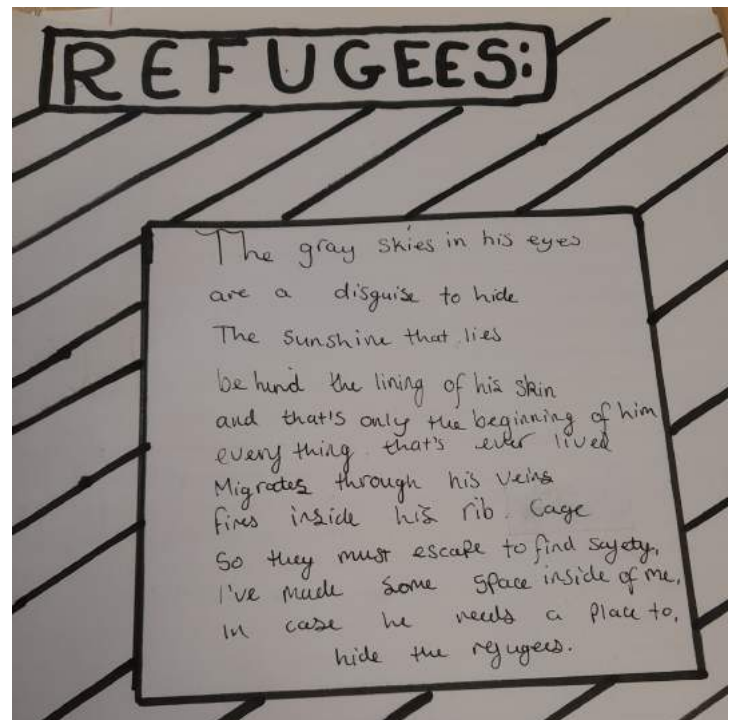 REFUGEES:
The gray skies in his eyes
are a disguise to hide
The sunshine that lies
behind the lining of his skin
and that's only the beginning of him
every thing that's ever lived
Migrates through his veins
fires inside his rib cage
So they must escape to find safety,
I've made some space inside of me,
In case he needs a place to,
hide the refugees.